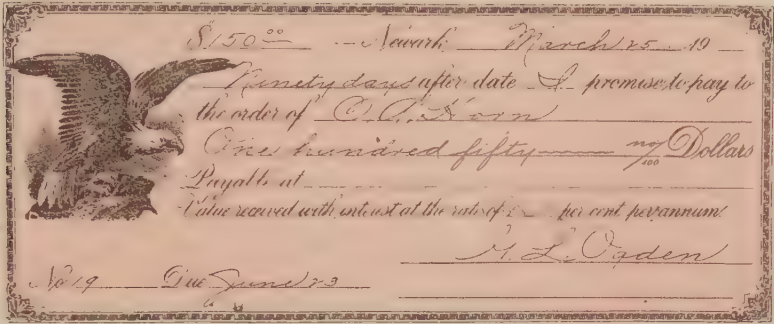 $150.00 Newark March 25 19
Ninety days after date I promise to pay to
the order of
One hundred fifty no/100 Dollars
Payable at
Value received with interest at the rate of per cent per annum
Ogden
No. 19 Due June 23